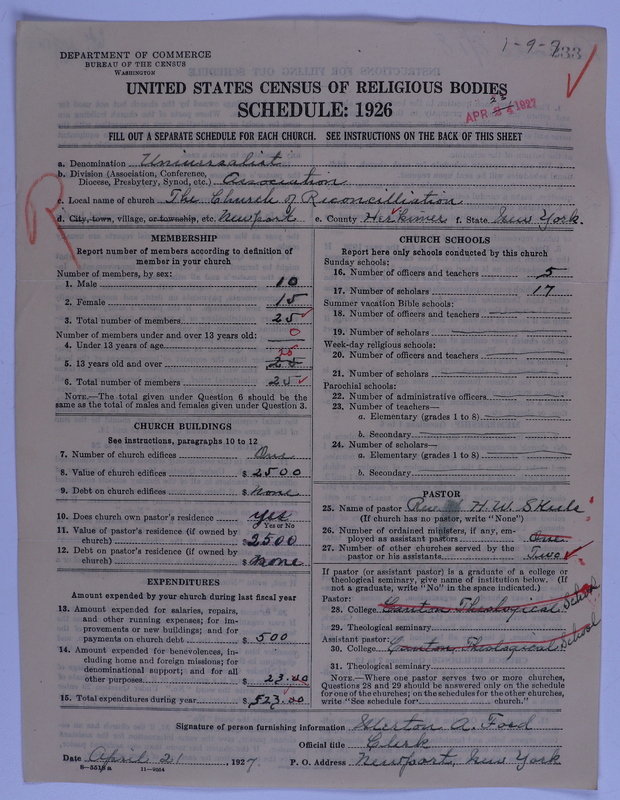 1-9-2 233
DEPARTMENT OF COMMERCE
BUREAU OF THE CENSUS
WASHINGTON
UNITED STATES CENSUS OF RELIGIOUS BODIES
SCHEDULE: 1926
APR 23 1927
FILL OUT A SEPARATE SCHEDULE FOR EACH CHURCH. SEE INSTRUCTIONS ON THE BACK OF THIS SHEET
a. Denomination Universalist
b. Division (Association, Conference,
Diocese, Presbytery, Synod, etc.) Association
c. Local name of church The Church of Reconcilliation
d. City, town, village, or township, etc. Newport e. County Herkimer f. State New York.
R
MEMBERSHIP
Report number of members according to definition of
member in your church
Number of members, by sex:
1. Male 10
2. Female 15
3. Total number of members 25
Number of members under and over 13 years old:
4. Under 13 years of age 0
5. 13 years old and over 25 25
6. Total number of members 25
NOTE.—The total given under Question 6 should be
same as the total of males and females given under Question 3.
CHURCH BUILDINGS
See instructions, paragraphs 10 to 12
7. Number of church edifices One
8. Value of church edifices $ 2500
9. Debt on church edifices $ None
10. Does church own pastor's residence yes
Yes or No
11. Value of pastor's residence (if owned by
church) $ 2500
12. Debt on pastor's residence (if owned by
church) $ None
EXPENDITURES
Amount expended by your church during last fiscal year
13. Amount expended for salaries, repairs,
and other running expenses; for im-
provements or new buildings; and for
payments on church debt $ 500
14. Amount expended for benevolences, in-
cluding home and foreign missions; for
denominational support; and for all
other purposes $ 23.00
15. Total expenditures during year $ 523.00
CHURCH SCHOOLS
Report here only schools conducted by this church
Sunday schools:
16. Number of officers and teachers 5
17. Number of scholars 17
Summer vacation Bible schools:
18. Number of officers and teachers
19. Number of scholars
Week-day religious schools:
20. Number of officers and teachers
21. Number of scholars
Parochial schools:
22. Number of administrative officers
23. Number of teachers—
a. Elementary (grades 1 to 8)
b. Secondary
24. Number of scholars—
a. Elementary (grades 1 to 8)
b. Secondary
PASTOR
25. Name of pastor Rev. H. W.
(If church has no pastor, write "None")
26. Number of ordained ministers, if any, em-
ployed as assistant pastors One
27. Number of other churches served by the
pastor or his assistants Two
If pastor (or assistant pastor) is a graduate of a college or
theological seminary, give name of institution below. (If
not a graduate, write "No" in the space indicated.)
Pastor:
28. College Canton Theological School
29. Theological seminary
Assistant pastor:
30. College Canton Theological School
31. Theological seminary
NOTE.—Where one pastor serves two or more churches,
Questions 28 and 29 should be answered only on the schedule
for one of the churches; on the schedules for the other churches,
write "See schedule for church."
Signature of person furnishing information Merton A. Ford
Official title Clerk
Date April 21, 1927. P. O. Address Newport, New York
8-5513a 11-9054